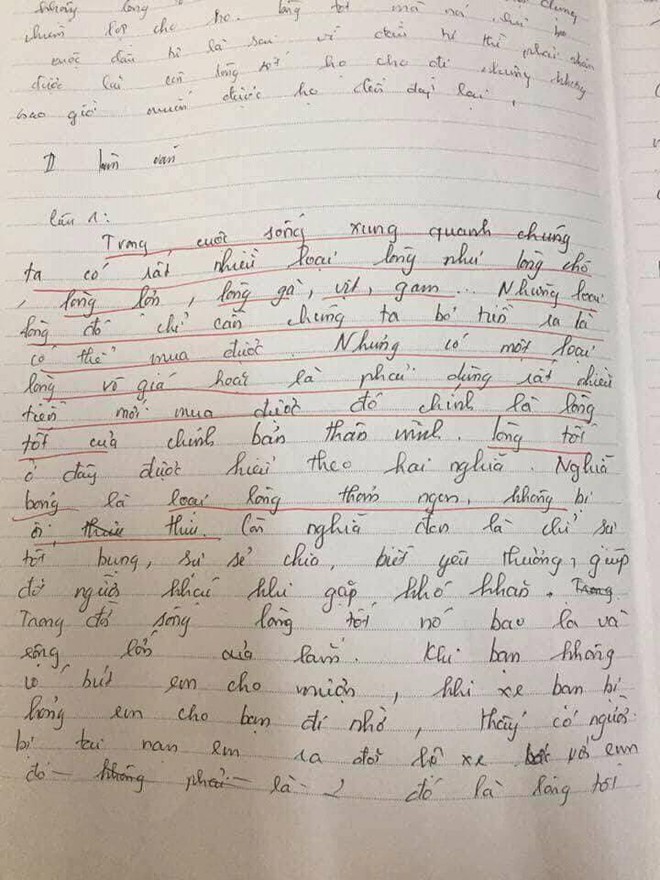 không lòng
cho họ. lòng tốt mà nó
cuộc đời là sau vì
được lại lòng tốt họ cho đi nhưng không
bao giờ muốn được họ đền đáp lại.
II làm văn
Câu 1:
Trong cuộc sống xung quanh chúng
ta có rất nhiều loại lòng như lòng chó
, lòng lợn, lòng gà, vịt, gam... Những loại
lòng đó chỉ cần chúng ta bỏ tiền ra là
có thể mua được. Nhưng có một loại
lòng vô giá hoặc là phải dùng rất nhiều
tiền mới mua được đó chính là lòng
tốt của chính bản thân mình. lòng tốt
ở đây được hiểu theo hai nghĩa. Nghĩa
bóng là loại lòng thơm ngon, không bị
ôi, thiu. Còn nghĩa đen là chỉ sự
tốt bụng, sự sẻ chia, biết yêu thương, giúp
đỡ người khác khi gặp khó khăn. Trong
Trong đời sống lòng tốt nó bao la và
rộng lớn lắm. Khi bạn không
có bút em cho mượn, khi xe bạn bị
hỏng em cho bạn đi nhờ, thấy có người
bị tai nạn em ra đỡ xe với em
đó không phải là đó là lòng tốt